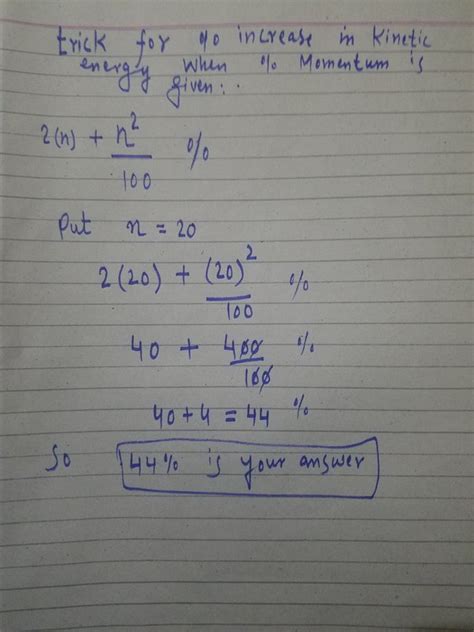 trick for % increase in Kinetic
energy when % Momentum is
given:.
2(n) + n²/100 %
Put n = 20
2(20) + (20)²/100 %
40 + 400/100 %
40+4 = 44 %
So 44% is your answer